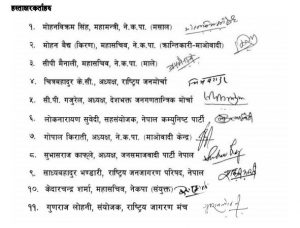 हस्ताक्षरकर्ताहरु
१. मोहनविक्रम सिंह, महामन्त्री, ने.क.पा. (मसाल)
२. मोहन वैद्य (किरण), महासचिव, ने.क.पा. (क्रान्तिकारी-माओवादी)
३. सीपी मैनाली, महासचिव, ने.क.पा. (माले)
४. चित्रबहादुर के.सी., अध्यक्ष, राष्ट्रिय जनमोर्चा
५. सी.पी. गजुरेल, अध्यक्ष, देशभक्त जनगणतान्त्रिक मोर्चा
६. लोकनारायण सुवेदी, सहसंयोजक, नेपाल कम्युनिष्ट पार्टी
७. गोपाल किराती, अध्यक्ष, ने.क.पा. (माओवादी केन्द्र)
८. सुभाषराज काफ्ले, अध्यक्ष, जनसमाजवादी पार्टी नेपाल
९. साध्यबहादुर भण्डारी, राष्ट्रिय जनजागरण परिषद्, नेपाल
१०. केदारचन्द्र शर्मा, महासचिव, नेकपा (संयुक्त)
११. गुणराज लोहनी, संयोजक, राष्ट्रिय जागरण मञ्च